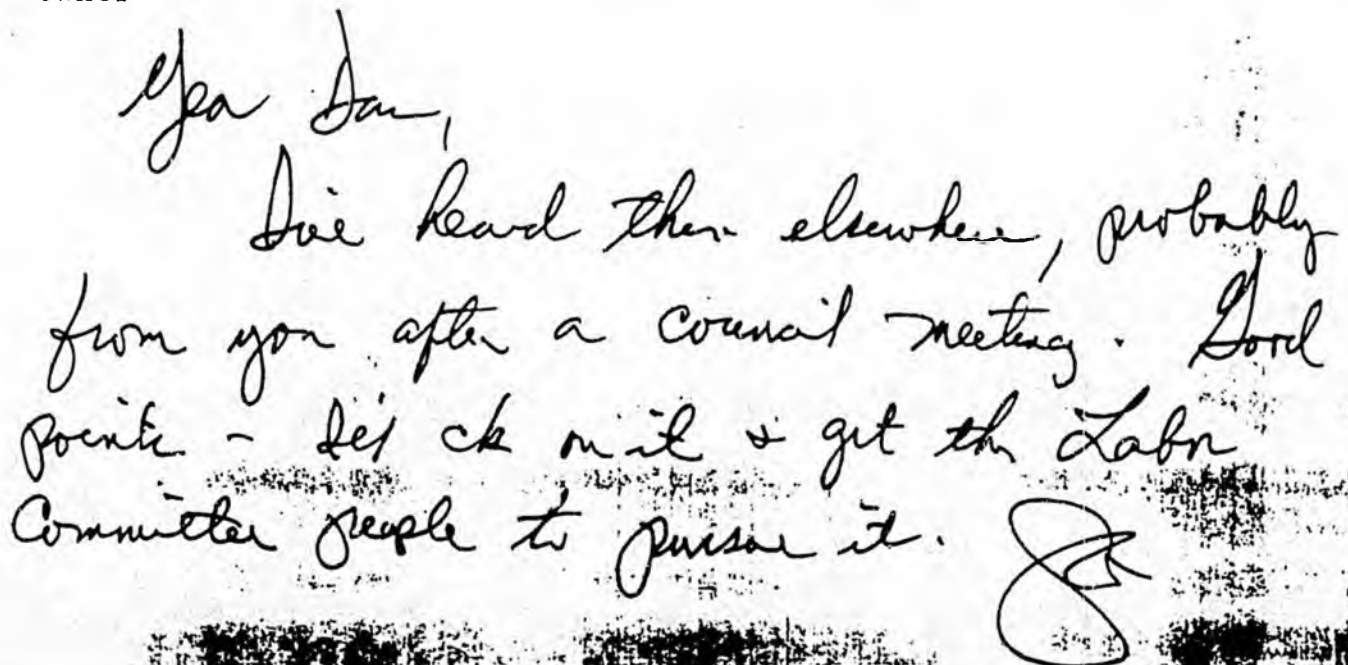 Yea Dan,
I've heard this elsewhere, probably
from you after a council meeting. Good
points - I'll ck on it & get the Labor
Committee people to pursue it.